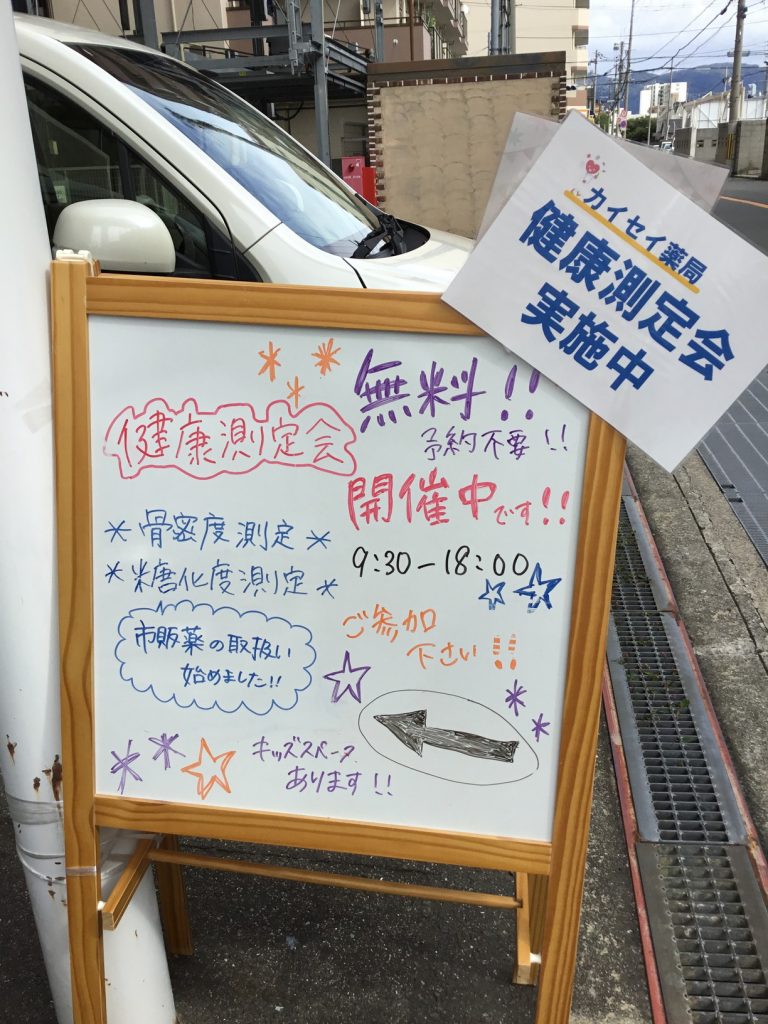 カイセイ薬局
健康測定会
実施中
無料!!
予約不要!!
健康測定会
開催中です!!
＊骨密度測定＊
＊糖化度測定＊
9:30-18:00
市販薬の取扱い
始めました!!
ご参加
下さい!!
キッズスペース
あります!!